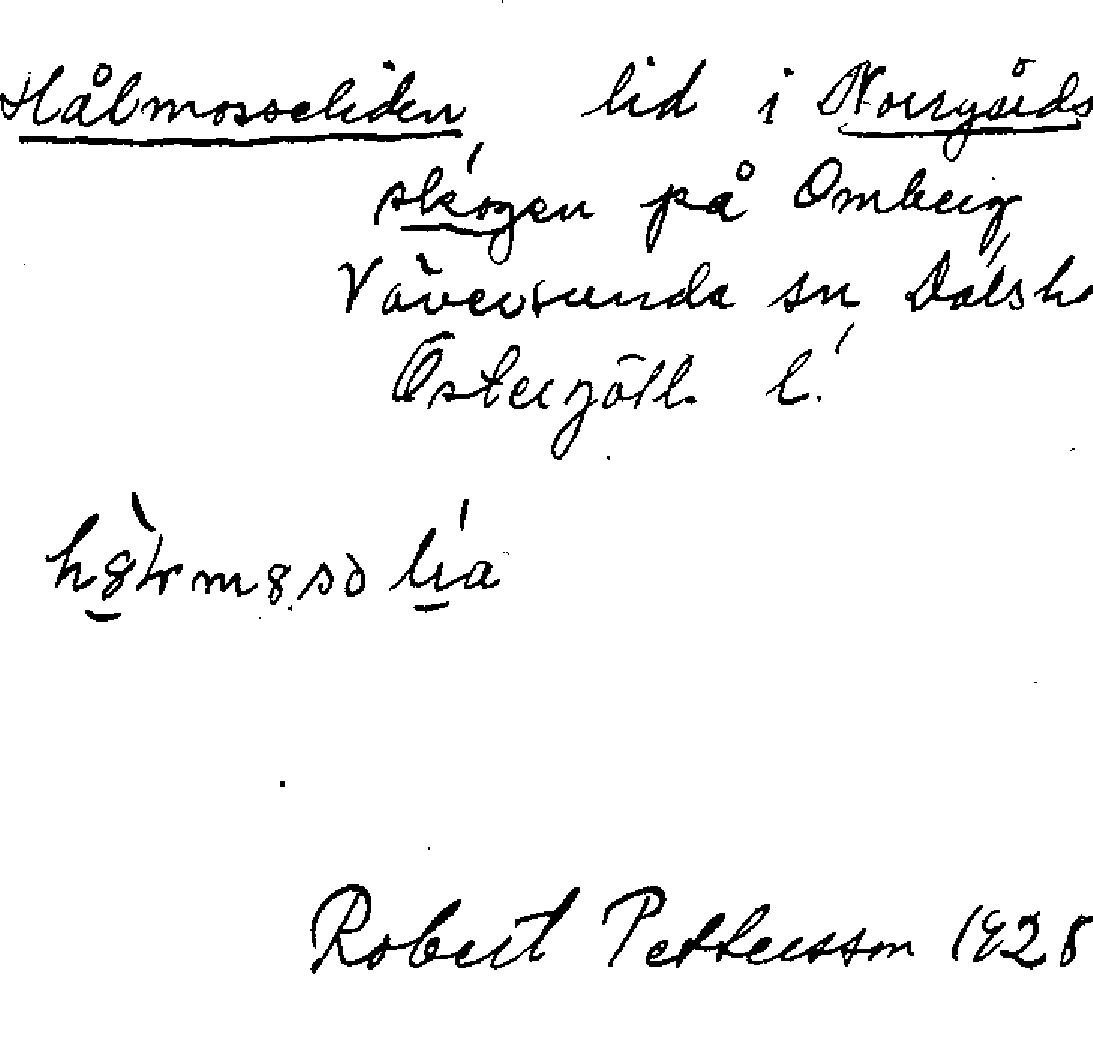 Hålmosseliden lid i Norrgårds
skogen på Omberg
Väversunda sn Dals h
Östergötl. l.
Robert Pettersson 1928